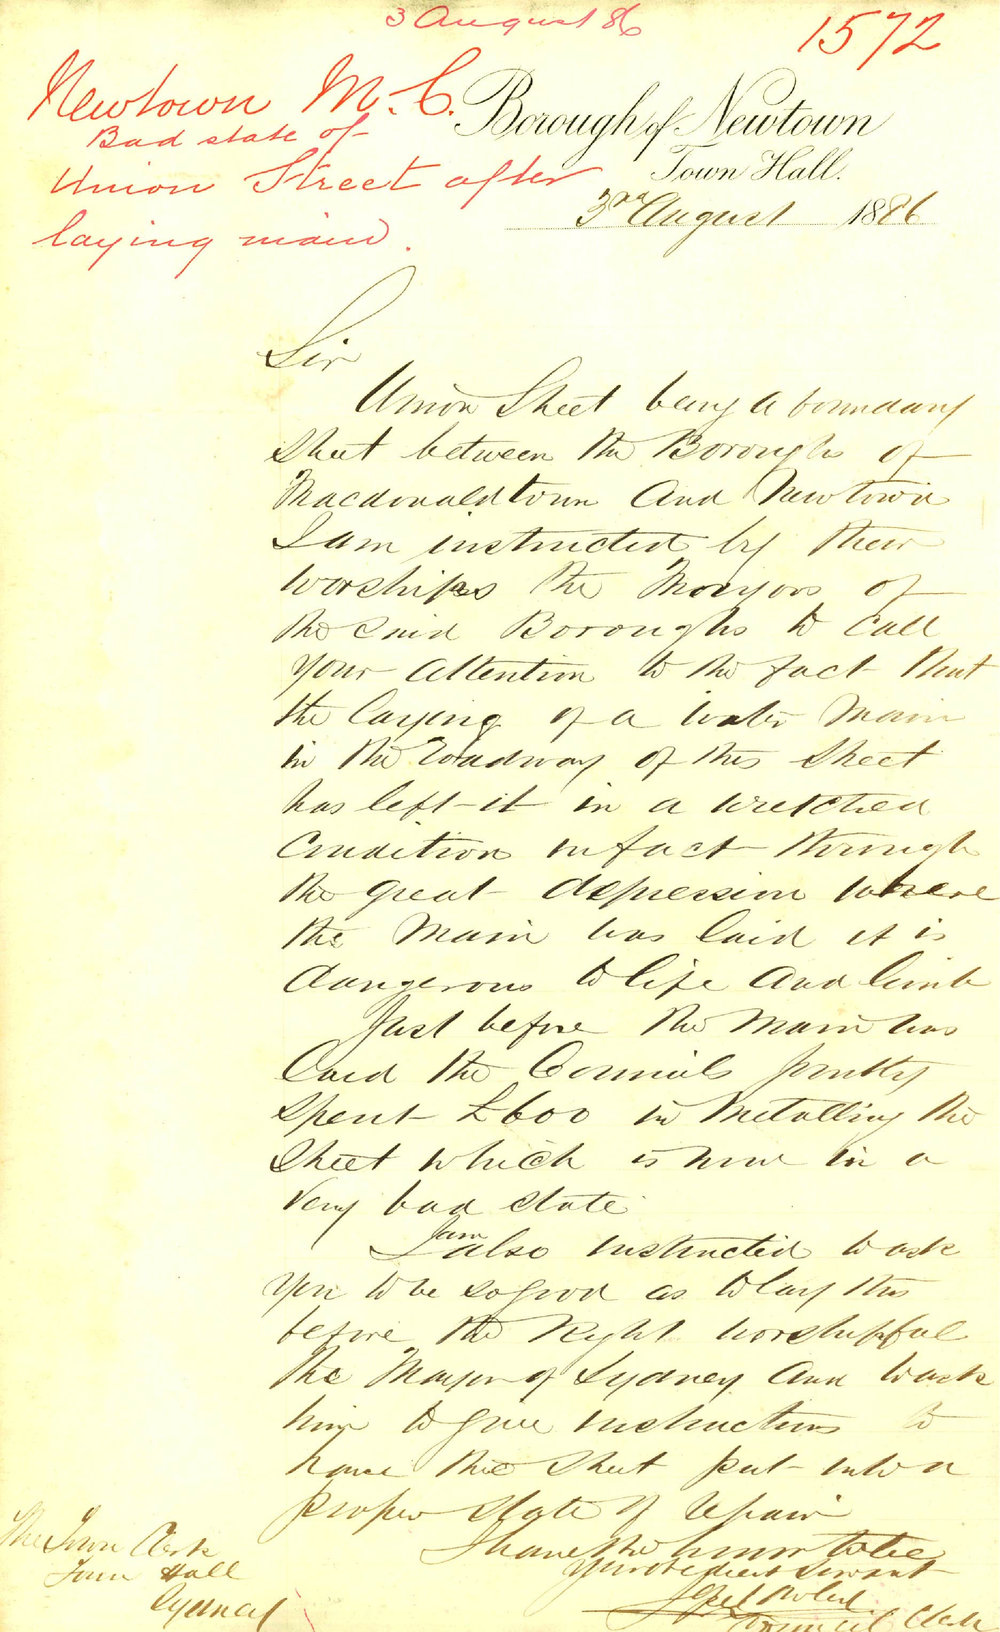 3 August 86
1572
Newtown M. C.
Bad state of
Union Street after
laying main.
Borough of Newtown
Town Hall.
3rd August 1886
Sir
Union Street being a boundary
Street between the Borough of
Macdonaldtown And Newtown
I am instructed by their
Worships the Mayors of
the said Boroughs to call
your attention to the fact that
the laying of a water Main
in the roadway of this Street
has left it in a wretched
Condition in fact through
the great depression where
the Main was laid it is
dangerous to life And limb
Just before the Main was
laid the Councils jointly
spent £600 in Metalling the
Street which is now in a
very bad state
I am also instructed to ask
you to be so good as to lay this
before the Right Worshipful
the Mayor of Sydney And to ask
him to give instructions to
have this Street put into a
proper state of repair
I have the honor to be
your obedient servant
Council Clerk
The Town Clerk
Town Hall
Sydney